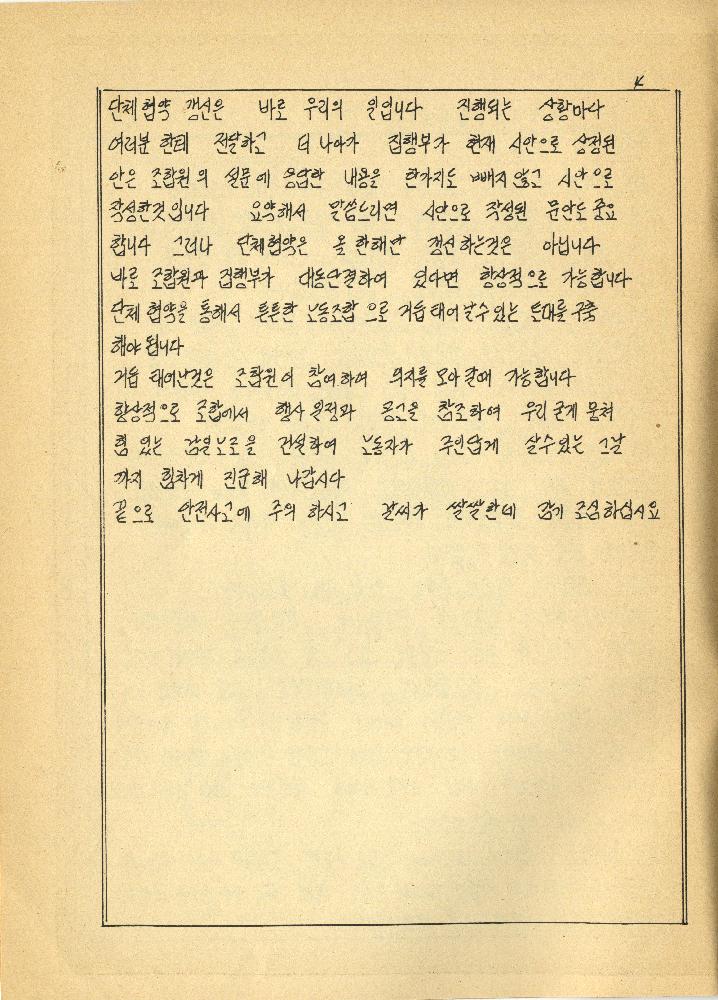 4
단체협약 갱신은 바로 우리의 일입니다 진행되는 상황마다
여러분 한테 전달하고 더 나아가 집행부가 현재 시안으로 상정된
안은 조합원의 설문에 응답한 내용을 한가지도 빼지 않고 시안으로
작성한것입니다 요약해서 말씀드리면 시안으로 작성된 문안도 중요
합니다 그러나 단체협약은 올 한해만 갱신 하는것은 아닙니다
바로 조합원과 집행부가 대동단결하여 있다면 항상적으로 가능합니다
단체 협약을 통해서 튼튼한 노동조합 으로 거듭 태어 날수있는 토대를 구축
해야 됩니다
거듭 태어난것은 조합원이 참여하여 의지를 모아 갈때 가능합니다
항상적으로 조합에서 행사 일정과 공고을 참조하여 우리 굳게 뭉쳐
힘 있는 감일노조을 건설하여 노동자가 주인답게 살수있는 그날
까지 힘차게 진군해 나갑시다
끝으로 안전사고에 주의 하시고 날씨가 쌀쌀한데 감기 조심하십시요